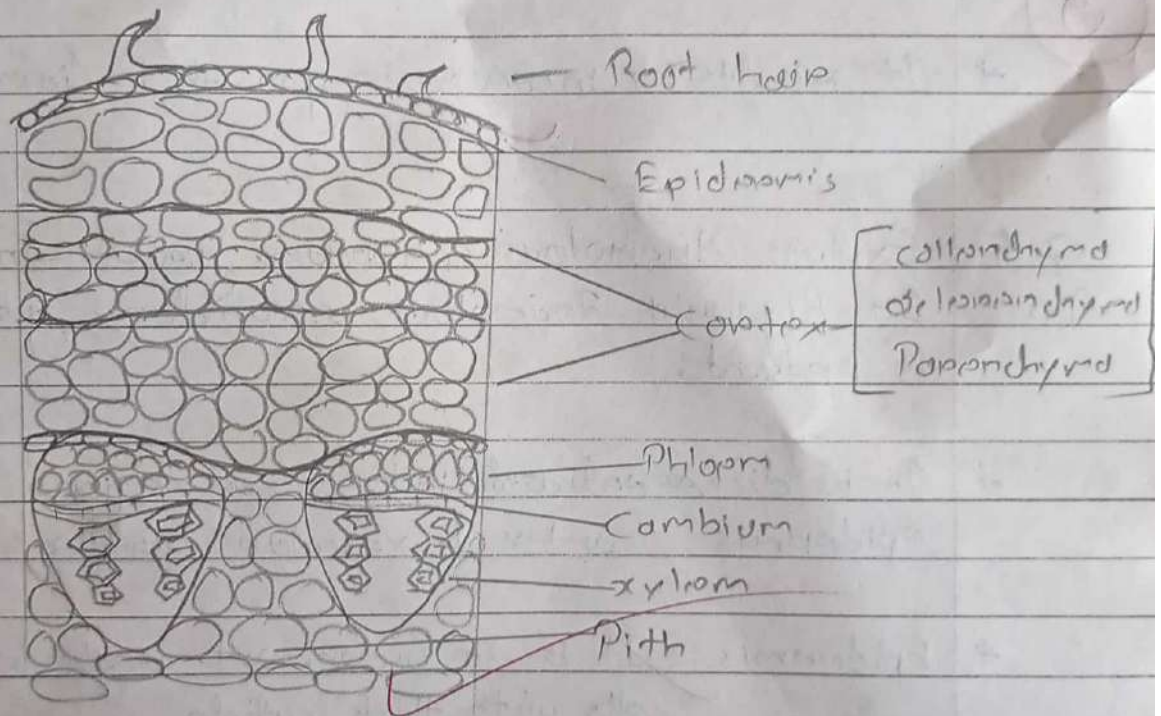 Root hair
Epidermis
collenchyma
Sclerenchyma
Cortex
Parenchyma
Phloem
Cambium
xylem
Pith